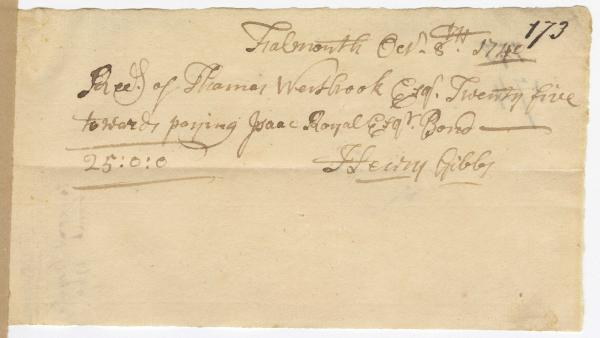 173
Falmouth Oct. 8th. 1742
Reed. of Thomas Westbrook Esqr. Twenty five
towards paying Isaac Royal Esqr. Bond
25:0:0 Henry Gibbs